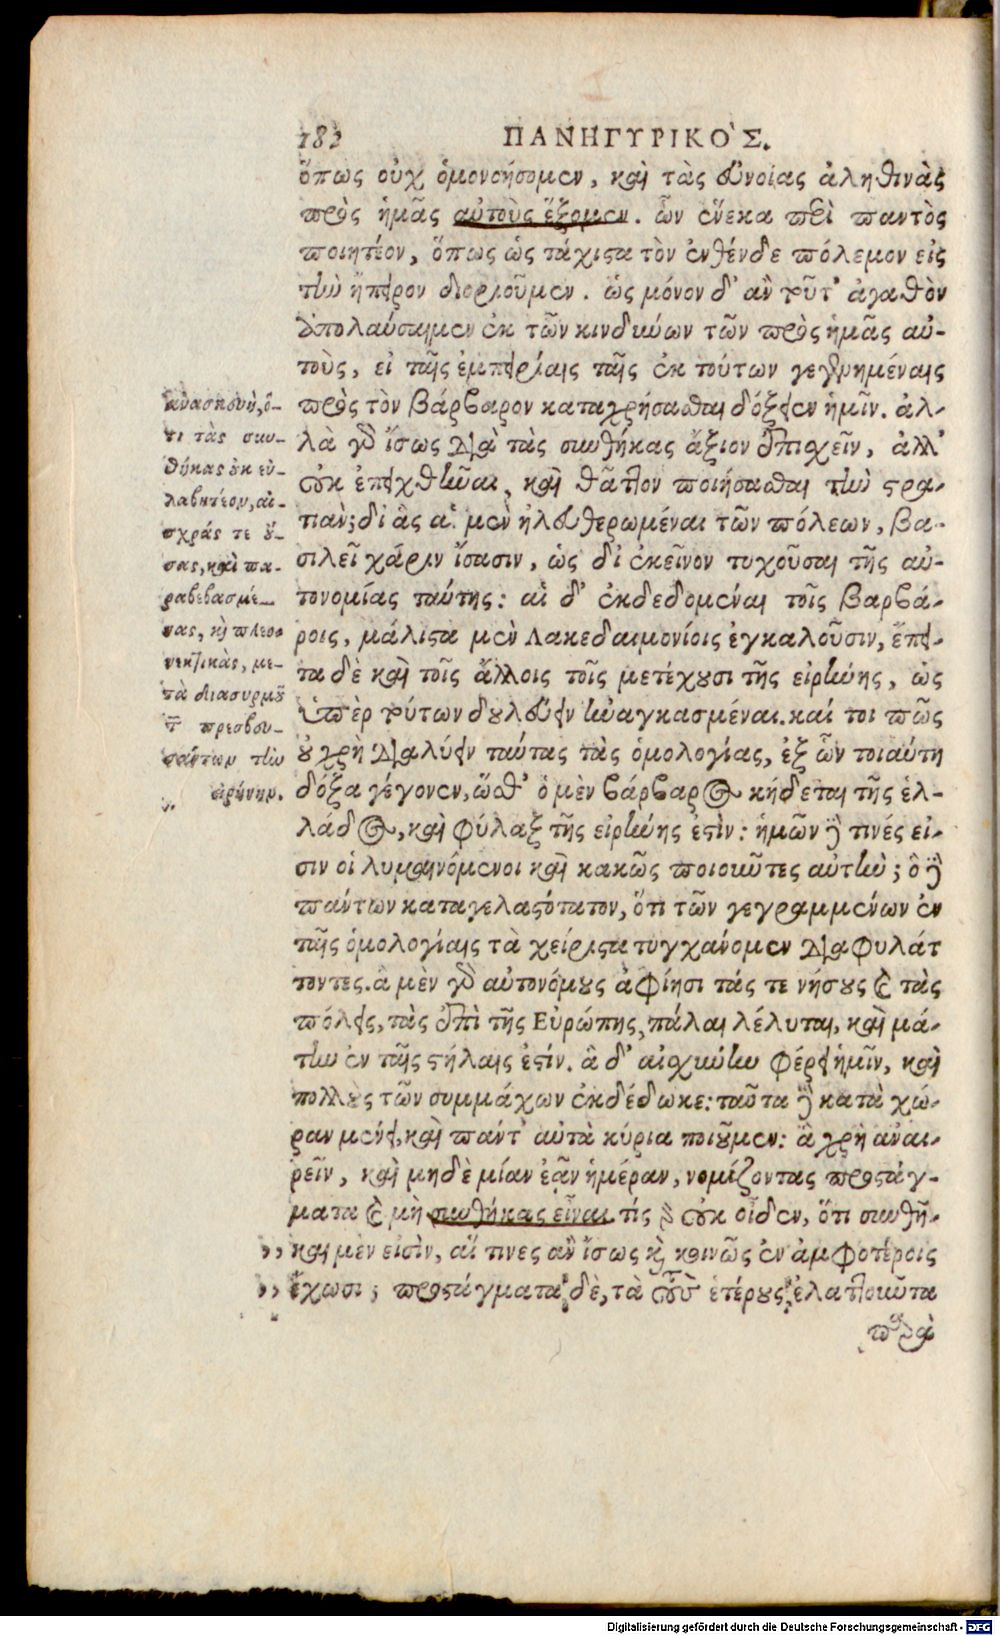 182
ΠΑΝΗΓΥΡΙΚΟ`Σ.
ὅπως οὐχ ὁμονοήσομεν, καὶ τὰς εὐνοίας ἀληθινὰς
πρὸς ἡμᾶς αὐτοὺς ἕξομεν. ὧν ἕνεκα περὶ παντὸς
ποιητέον, ὅπως ὡς τάχιστα τὸν ἐνθένδε πόλεμον εἰς
τὴν ἤπειρον διοριοῦμεν. ὡς μόνον δ' ἂν τοῦτ' ἀγαθὸν
ἀπολαύσαιμεν ἐκ τῶν κινδύνων τῶν πρὸς ἡμᾶς αὐ-
τοὺς, εἰ ταῖς ἐμπειρίαις ταῖς ἐκ τούτων γεγενημέναις
πρὸς τὸν βάρβαρον καταχρήσασθαι δόξειεν ἡμῖν. ἀλ-
λὰ γὰρ ἴσως διὰ τὰς συνθήκας ἄξιον ἐπισχεῖν, ἀλλ'
οὐκ ἐπειχθῆναι, καὶ θᾶττον ποιήσασθαι τὴν στρα-
τιὰν; δι' ἃς αἱ μὲν ἠλευθερωμέναι τῶν πόλεων, βα-
σιλεῖ χάριν ἴσασιν, ὡς δι' ἐκεῖνον τυχοῦσαι τῆς αὐ-
τονομίας ταύτης: αἱ δ' ἐκδεδομέναι τοῖς βαρβά-
ροις, μάλιστα μὲν Λακεδαιμονίοις ἐγκαλοῦσιν, ἔπει-
τα δὲ καὶ τοῖς ἄλλοις τοῖς μετέχουσι τῆς εἰρήνης, ὡς
ὑπὲρ τούτων δουλεύειν ἠναγκασμέναι. καί τοι πῶς
οὐ χρὴ διαλύειν ταύτας τὰς ὁμολογίας, ἐξ ὧν τοιαύτη
δόξα γέγονεν, ὥσθ' ὁ μὲν βάρβαρος κήδεται τῆς ἑλ-
λάδος, καὶ φύλαξ τῆς εἰρήνης ἐστὶν: ἡμῶν δέ τινές εἰ-
σιν οἱ λυμαινόμενοι καὶ κακῶς ποιοῦντες αὐτήν; ὃ δὲ
πάντων καταγελαστότατον, ὅτι τῶν γεγραμμένων ἐν
ταῖς ὁμολογίαις τὰ χείριστα τυγχάνομεν διαφυλάτ
τοντες. ἃ μὲν γὰρ αὐτονόμους ἀφίησι τάς τε νήσους καὶ τὰς
πόλεις, τὰς ἐπὶ τῆς Εὐρώπης, πάλαι λέλυται, καὶ μά-
την ἐν ταῖς στήλαις ἐστίν. ἃ δ' αἰσχύνην φέρει ἡμῖν, καὶ
πολλοὺς τῶν συμμάχων ἐκδέδωκε: ταῦτα δὲ κατὰ χώ-
ραν μένει, καὶ πάντ' αὐτὰ κύρια ποιοῦμεν: ἃ χρὴ ἀναι-
ρεῖν, καὶ μηδὲ μίαν ἐᾶν ἡμέραν, νομίζοντας προστάγ-
ματα καὶ μὴ συνθήκας εἶναι. τίς γὰρ οὐκ οἶδεν, ὅτι συνθῆ-
,, και μέν εἰσὶν, αἵ τινες ἂν ἴσως καὶ κοινῶς ἐν ἀμφοτέροις
,, ἔχωσι; προστάγματα δὲ, τὰ τοὺς ἑτέρους ἐλαττοῦντα
παρὰ
ἀνασκευὴ, ὅ-
τι τὰς συν-
θήκας οὐκ εὐ-
λαβητέον, αἰ-
σχράς τε οὔ-
σας, καὶ πα-
ραβεβασμέ-
νας, καὶ πλεο-
νεκτικὰς, με-
τὰ διασυρμοῦ
τῶν πρεσβευ-
σάντων τὴν
εἰρήνην.
Digitalisierung gefördert durch die Deutsche Forschungsgemeinschaft - DFG